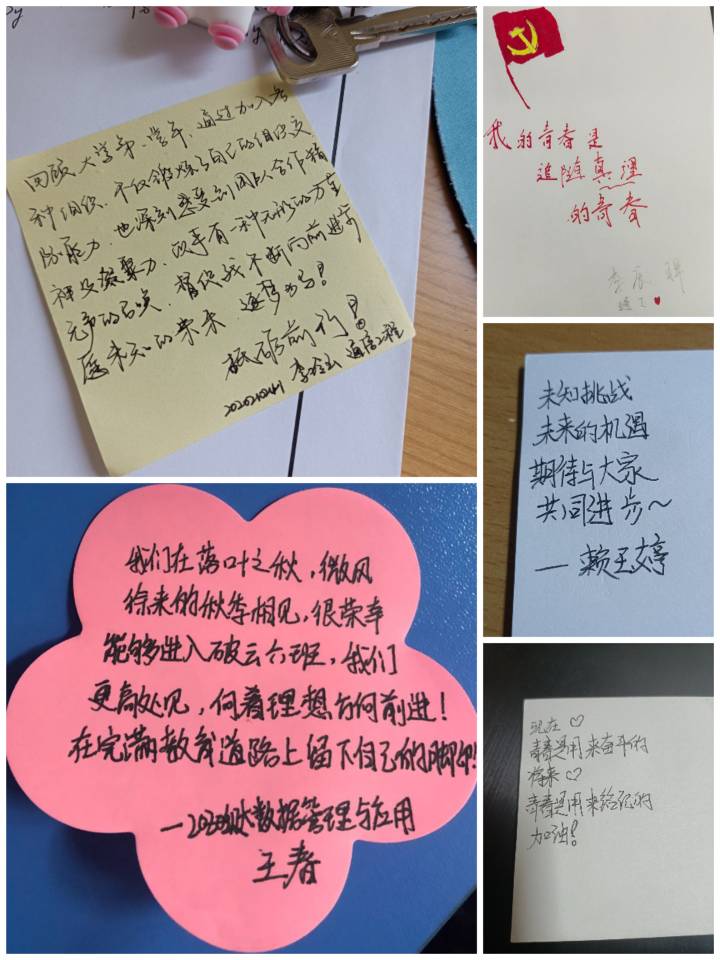 回顾大学第一学年,通过加入各
种组织,不仅锻炼了自己的组织交
际能力,也深刻感受到团队合作精
神及凝聚力,似乎有一种无形的力量
无声的召唤,督促我不断向前进步
愿未的未来,逐梦
砥砺前行!
李 通信工程
我的青春是
追随真理
的青春
李辰
未知挑战
未来的机遇
期待与大家
共同进步~
— 赖玉婷
我们在落叶之秋,微风
徐来的秋季相见,很荣幸
能够进入破云六班,我们
更高处见,向着理想方向前进!
在完满教育道路上留下自己的脚印!
—2020级大数据管理与应用
王春
现在♡
青春是用来奋斗的
将来♡
青春是用来给回忆的
加油!